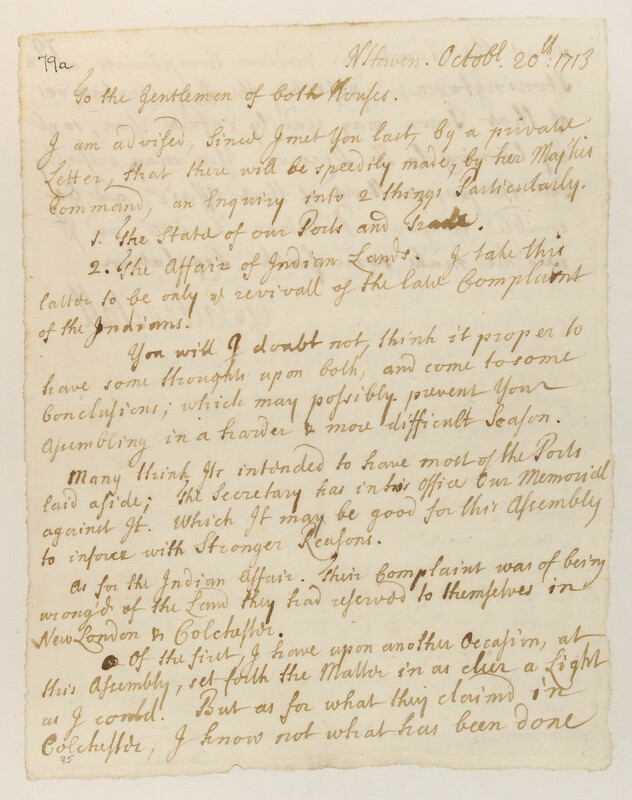 79a
NHaven. Octobr. 20th. 1713
To the Gentlemen of both Houses.
I am advised, Since I met You last, by a private
Letter, that there will be speedily made, by her Majties
Command, an Enquiry into 2 things Particularly.
1. The State of our Ports and Trade.
2. The Affair of Indian Lands. I take this
latter to be only ye revivall of the late Complaint
of the Indians.
You will I doubt not, think it proper to
have some thoughts upon both, and come to some
Conclusions; which may possibly prevent Your
Assembling in a harder & more difficult Season.
Many think Its intended to have most of the Ports
laid aside; The Secretary has in his Office Our Memoriall
against It. Which It may be good for this Assembly
to inforce with Stronger Reasons.
As for the Indian Affair. Their Complaint was of being
wrong'd of the Land they had reserved to themselves in
New London & Colchester.
Of the first, I have upon another Occasion, at
this Assembly, set forth the Matter in as cleer a Light
as I could. But as for what they claimd in
Colchester, I know not what has been done
95